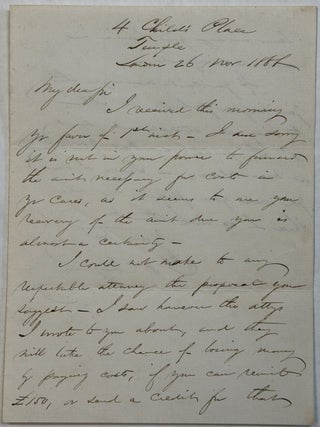 4 Child's Place
Temple
London 26 Nov
My dear Sir
I received this morning
yr favor of 1st inst - I am sorry
it is not in your power to forward
the amt necessary for costs in
yr cases, as it seems to me your
recovery of the amt due you is
almost a certainty -
I could not make to any
respectable attorney the proposal you
suggest - I saw however the attys
I wrote to you about, and they
will take the chance of losing money
by paying costs, if you can remit
£150, or send a credit for that